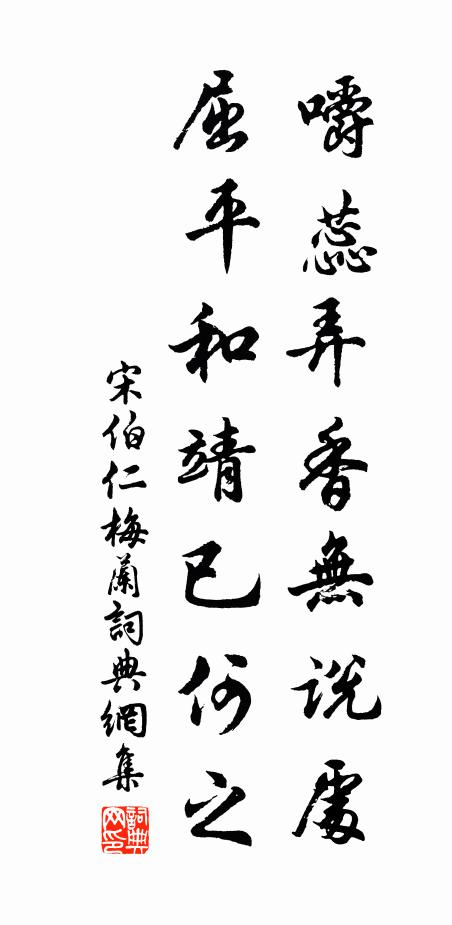 嚼蕊弄香無說處
屈平和靖已何之
宋伯仁梅蘭詞典網集
詞典网印